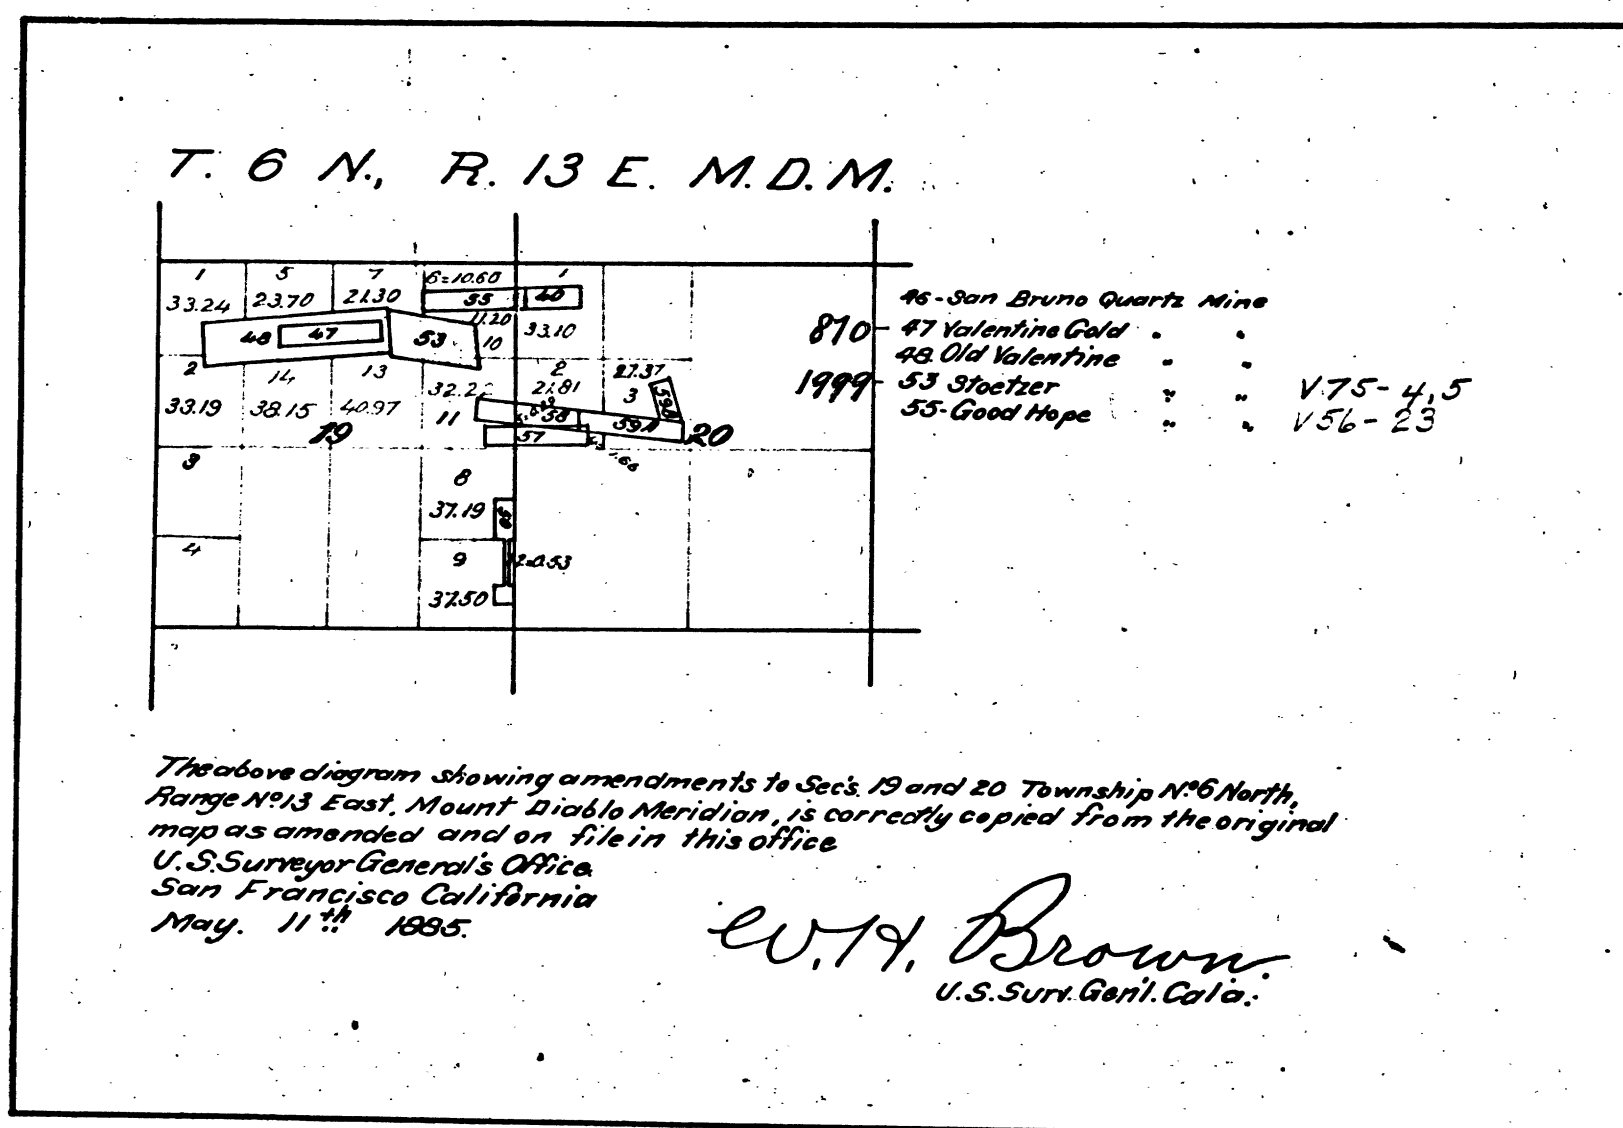 T. 6 N., R. 13 E. M.D.M.
1 5 7 6=10.60 1
33.24 23.70 21.30 55 40
11.20
48 47 53 10 33.10
2 14 13 2 27.37
32.2 21.81 3 59A
33.19 38.15 40.97 11 58 59A
19 57 20
3
8
37.19
4 9 2=0.53
37.50
46-San Bruno Quartz Mine
870- 47 Valentine Gold " "
48 Old Valentine " "
1999- 53 Stoetzer " " V.75-4,5
55-Good Hope " " V56-23
The above diagram showing amendments to Sec's. 19 and 20 Township No. 6 North,
Range No. 13 East, Mount Diablo Meridian, is correctly copied from the original
map as amended and on file in this office
U.S. Surveyor General's Office
San Francisco California
May. 11th 1885.
W.H. Brown.
U.S. Surv. Gen'l. Cala.